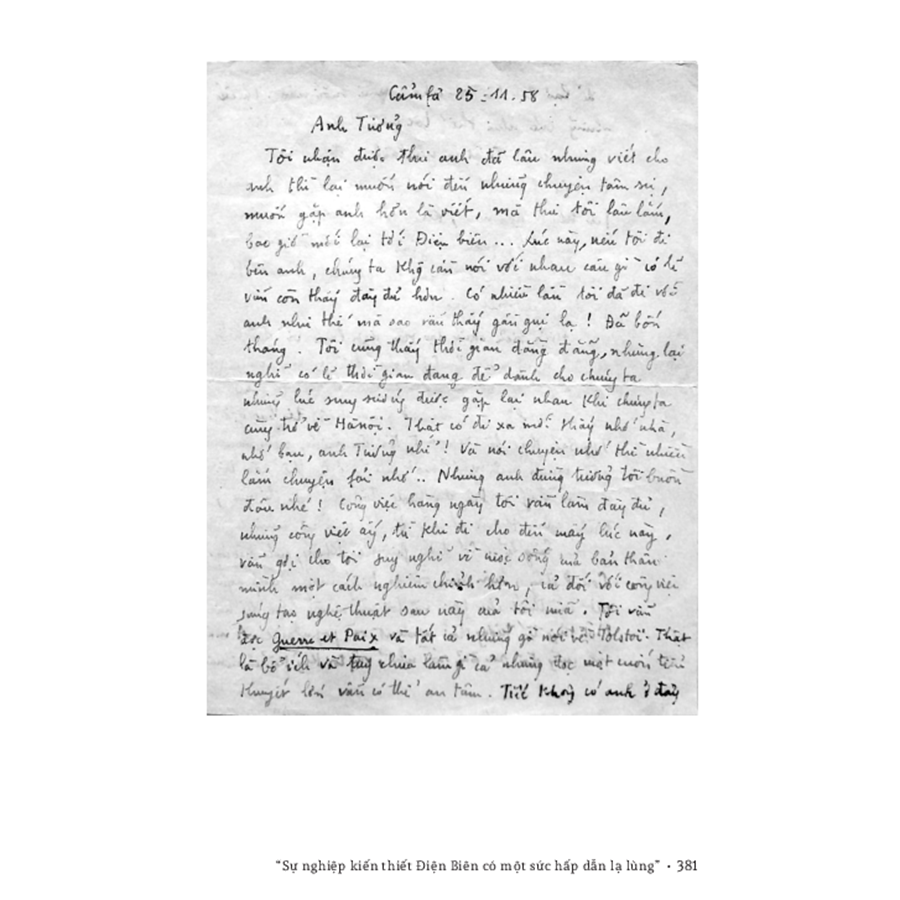 Cẩmfả 25-11-58
Anh Tưởng
Tôi nhận được thư anh đã lâu nhưng viết cho
anh thì lại muốn nói đến những chuyện tâm sự,
muốn gặp anh hơn là viết, mà thư tôi lâu lắm,
bao giờ mới lại tới Điện biên... Lúc này, nếu tôi đi
bên anh, chúng ta khg cần nói với nhau câu gì có lẽ
vẫn còn thấy đầy đủ hơn. Có nhiều lần tôi đã đi với
anh như thế mà sao vẫn thấy gần gụi lạ! Đã bốn
tháng. Tôi cũng thấy thời gian đằng đẵng, nhưng lại
nghĩ có lẽ thời gian đang để dành cho chúng ta
những lúc sung sướng được gặp lại nhau khi chúng ta
cùng trở về Hànội. Thật có đi xa mới thấy nhớ nhà,
nhớ bạn, anh Tưởng nhỉ! Và nói chuyện nhớ thì nhiều
lắm chuyện fải nhớ.. Nhưng anh đừng tưởng tôi buồn
đâu nhé! Công việc hàng ngày tôi vẫn làm đầy đủ,
những công việc ấy, từ khi đi cho đến mấy lúc này,
vẫn gợi cho tôi suy nghĩ về cuộc sống mà bản thân
mình một cách nghiêm chỉnh hơn, cả đối với công việc
sáng tạo nghệ thuật sau này của tôi nữa. Tôi vẫn
đọc Guerre et Paix và tất cả những gì nói về Tolstoi. Thật
là bổ ích và tuy chưa làm gì cả nhưng đọc một cuốn tiểu
thuyết lớn vẫn có thể an tâm. Tiếc không có anh ở đây
“Sự nghiệp kiến thiết Điện Biên có một sức hấp dẫn lạ lùng” • 381